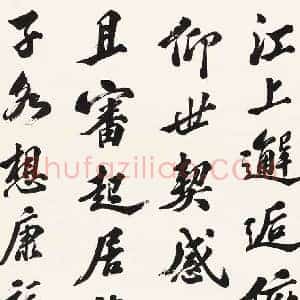 江上邂逅
仰世契感
且審起居
子名想康
shufazilian.com